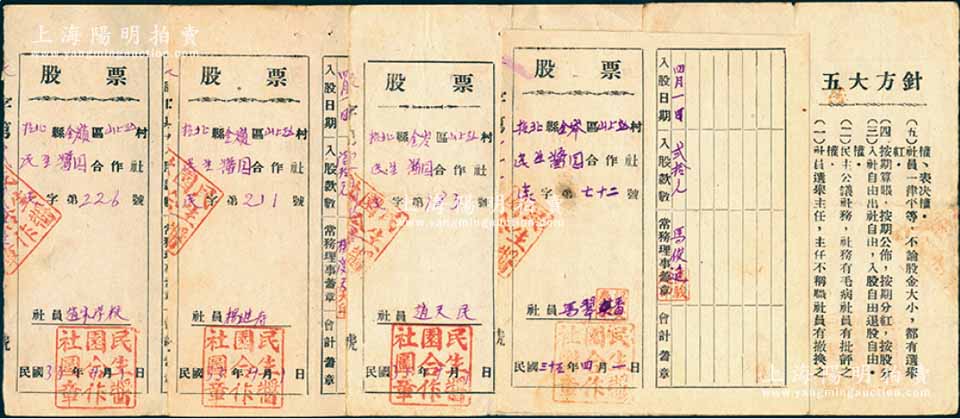 上海陽明拍賣
www.yangmingauction.com
五大方針
(一)社員選舉主任,主任不稱職社員有撤換之權。
(二)民主公議社務,社務有毛病社員有批評之權。
(三)入社自由出社自由,入股自由退股自由。
(四)按期算賬,按期公佈,按期分紅,按股分紅。
(五)社員一律平等,不論股金大小,都有選舉權、表决權。
入股日期
入股款數
常務理事蓋章
會計蓋章
四月一日
貳拾元
股票
縣金嶺區
村
民生醬園合作社
字第七十二號
社員
民國三十五年四月一日
民生醬園合作社圖章
股票
縣金嶺區
村
民生醬園合作社
字第183號
社員 趙天民
民國
年
月
日
民生醬園合作社圖章
入股日期
入股款數
常務理事蓋章
會計蓋章
四月一日
股票
縣金嶺區
村
民生醬園合作社
字第211號
社員
民國
年
月
日
民生醬園合作社圖章
股票
縣金嶺區
村
民生醬園合作社
字第226號
社員
民國
年
月
日
民生醬園合作社圖章